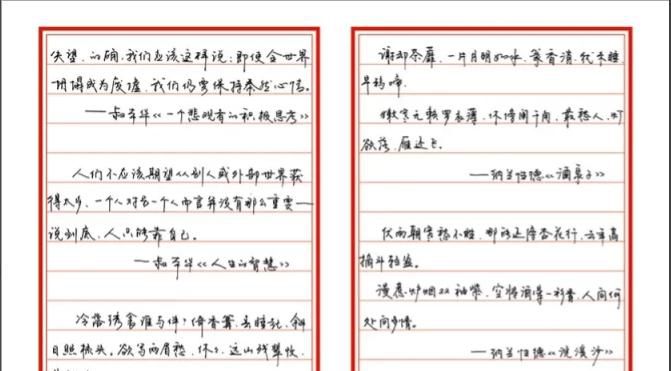 失望．的确，我们应该这样说：即使全世界
坍塌成为废墟，我们仍要保持泰然心情。
——叔本华《一个悲观者的积极思考》
人们不应该期望从别人或外部世界获
得太多．一个人对另一个人而言并没有那么重要——
说到底，人只能靠自己。
——叔本华《人生的智慧》
冷落绣衾谁与伴？倚香篝．春睡起，斜
日照梳头。欲写两眉愁，休休，远山残翠收，
谢却荼蘼，一片月明如水．篆香消，犹未睡，
早鸦啼。
嫩寒无赖罗衣薄，休傍阑干角．最愁人，灯
欲落，雁还飞。
——纳兰性德《酒泉子》
伏雨朝寒愁不胜，那能还傍杏花行．去年高
摘斗轻盈。
漫惹炉烟双袖紫，空将酒晕一衫青．人间何
处问多情。
——纳兰性德《浣溪沙》